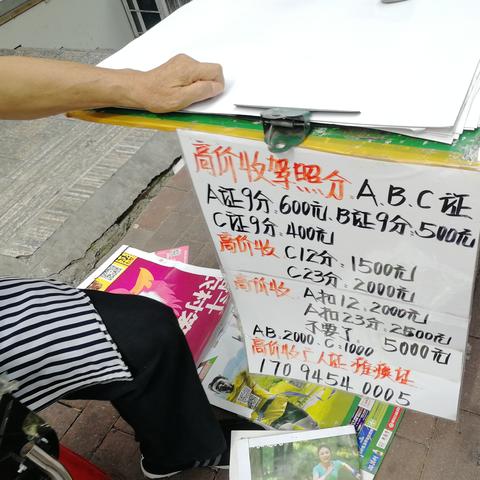 高价收驾照分.A.B.C证
A证9分:600元.B证9分:500元
C证9分.400元
高价收 C12分:1500元
C23分:2000元
高价收 A扣12.2000元
A扣23分:2500元
不要了 5000元
AB.2000.C=1000
高价收亡人证 换证
170 9454 0005
村